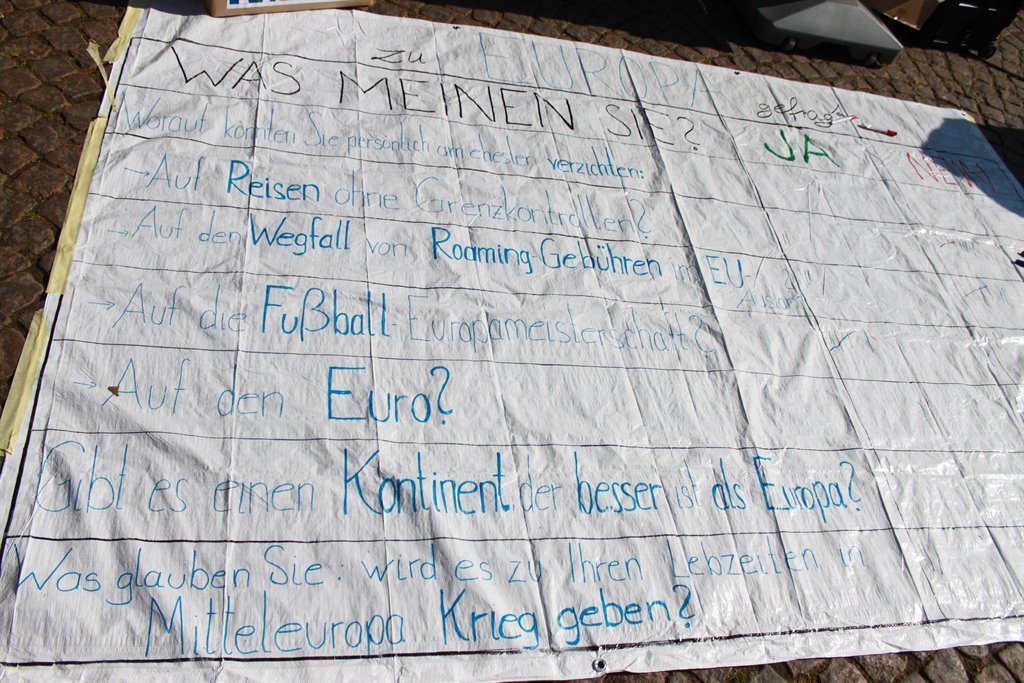 zu EUROPA gefragt
WAS MEINEN SIE? JA NEIN
Worauf könnten Sie persönlich am ehesten verzichten:
→ Auf Reisen ohne Grenzkontrollen?
→ Auf den Wegfall von Roaming-Gebühren im EU-
Ausland
→ Auf die Fußball-Europameisterschaft?
→ Auf den Euro?
Gibt es einen Kontinent der besser ist als Europa?
Was glauben Sie: wird es zu Ihren Lebzeiten in
Mitteleuropa Krieg geben?